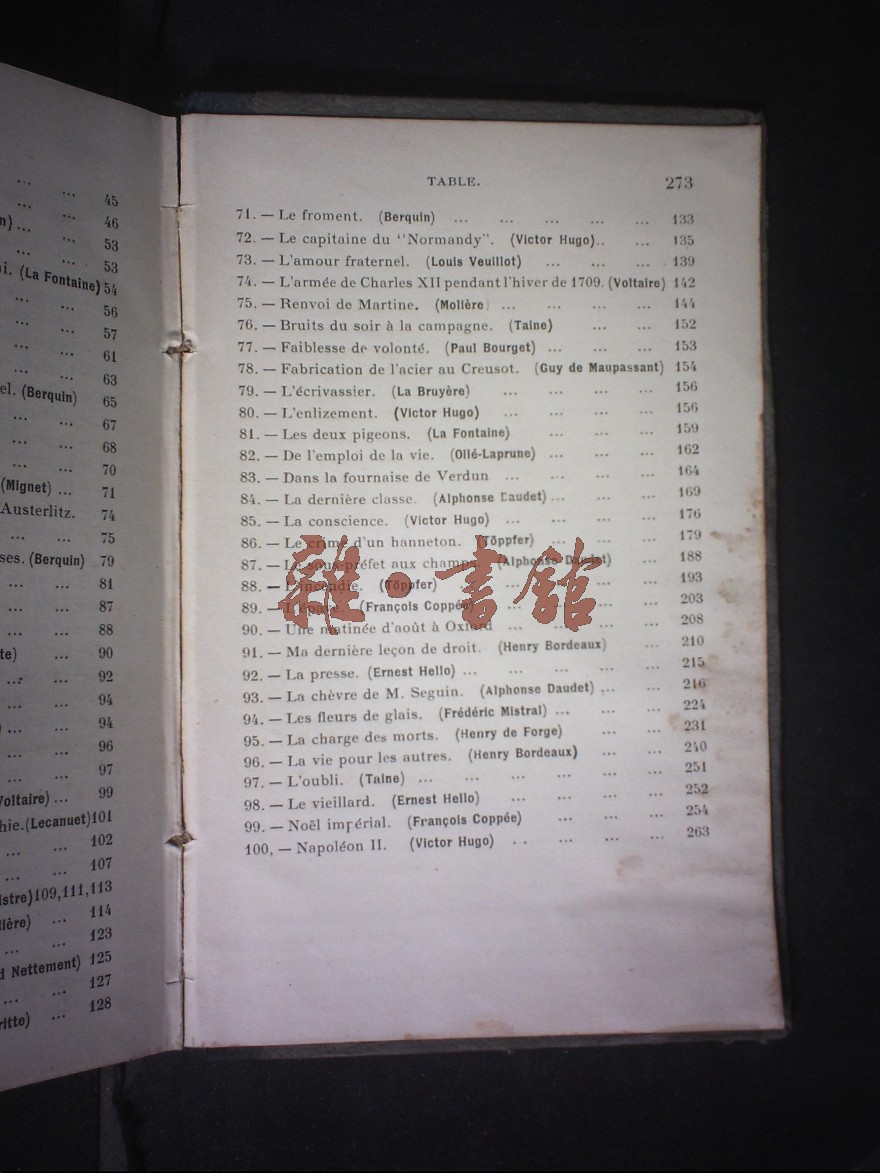 45
46
n) ... 53
53
i. (La Fontaine) 54
56
57
61
63
el. (Berquin) 65
67
68
70
(Mignet) ... 71
Austerlitz. 74
75
ses. (Berquin) 79
81
87
88
te) ... 90
92
94
94
96
97
Voltaire) ... 99
hie. (Lecanuet) 101
102
107
istre) 109, 111, 113
lière) ... 114
123
d Nettement) 125
127
ritte) ... 128
TABLE. 273
71. — Le froment. (Berquin) ... ... ... ... ... 133
72. — Le capitaine du "Normandy". (Victor Hugo).. ... 135
73. — L'amour fraternel. (Louis Veuillot) ... ... . 139
74. — L'armée de Charles XII pendant l'hiver de 1709. (Voltaire) 142
75. — Renvoi de Martine. (Molière) ... ... ... ... 144
76. — Bruits du soir à la campagne. (Taine) ... ... 152
77. — Faiblesse de volonté. (Paul Bourget) ... ... ... 153
78. — Fabrication de l'acier au Creusot. (Guy de Maupassant) 154
79. — L'écrivassier. (La Bruyère) ... ... ... ... 156
80. — L'enlizement. (Victor Hugo) ... ... ... ... 156
81. — Les deux pigeons. (La Fontaine) ... ... ... 159
82. — De l'emploi de la vie. (Ollé-Laprune) ... ... ... 162
83. — Dans la fournaise de Verdun ... ... ... ... 164
84. — La dernière classe. (Alphonse Daudet) ... ... ... 169
85. — La conscience. (Victor Hugo) ... ... ... ... 176
86. — Le crime d'un hanneton. (Töppfer) ... ... ... 179
87. — Le sous-préfet aux champs. (Alphonse Daudet) ... 188
88. — L'incendie. (Töppfer) ... ... ... ... 193
89. — L'épave. (François Coppée) ... ... ... ... 203
90. — Une matinée d'août à Oxford ... ... ... ... 208
91. — Ma dernière leçon de droit. (Henry Bordeaux) ... 210
92. — La presse. (Ernest Hello) ... ... ... ... ... 215
93. — La chèvre de M. Seguin. (Alphonse Daudet) ... ... 216
94. — Les fleurs de glais. (Frédéric Mistral) ... ... ... 224
95. — La charge des morts. (Henry de Forge) ... ... 231
96. — La vie pour les autres. (Henry Bordeaux) ... ... 240
97. — L'oubli. (Taine) ... ... ... ... ... ... 251
98. — Le vieillard. (Ernest Hello) ... ... ... ... 252
99. — Noël impérial. (François Coppée) ... ... ... 254
100, — Napoléon II. (Victor Hugo) .. ... ... ... 263
雜·書館